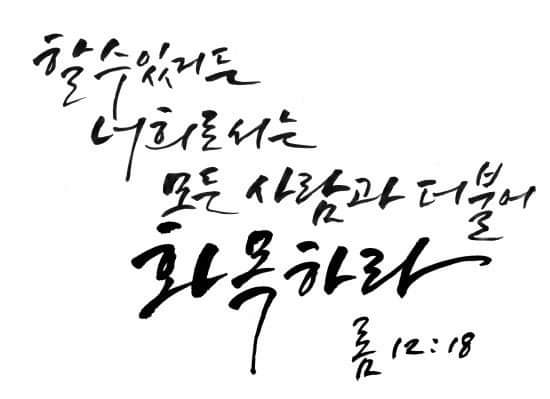 할 수 있거든
너희로서는
모든 사람과 더불어
화목하라
롬 12:18